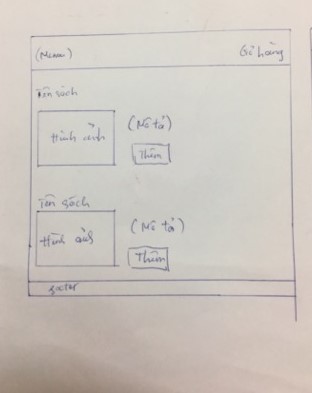 (Menu) Giỏ hàng
Tên sách
Hình ảnh (Mô tả)
Thêm
Tên sách
Hình ảnh (Mô tả)
Thêm
footer